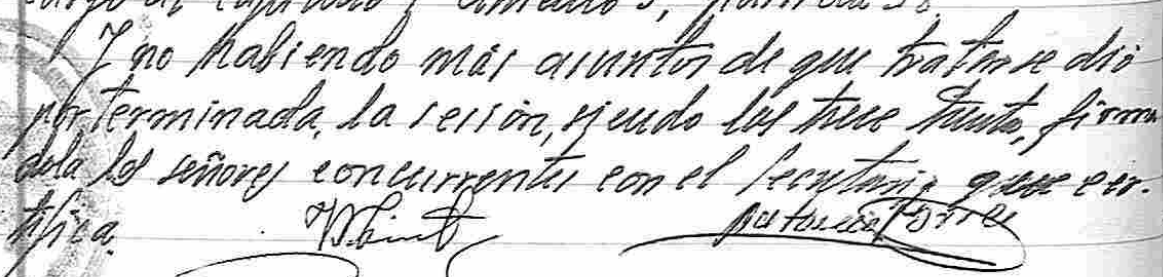 Y no habiendo más asuntos de que tratar se dió
por terminada, la sesión, siendo las trece treinta, firman
dola los señores concurrentes con el Secretario que cer-
tifica.